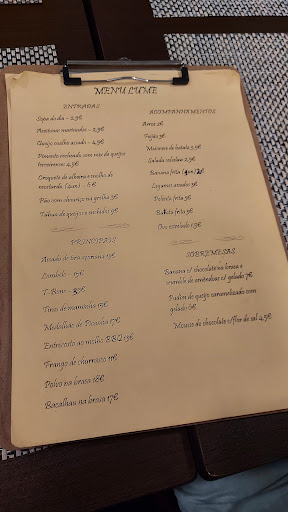 MENU LUME
ENTRADAS
Sopa do dia - 2,5€
Azeitonas marinadas - 2,5€
Queijo coalho assado - 4,5€
Pimento recheado com mix de queijos
transmontano 4,5€
Croquete de alheira e molho de
mostarda (2uni) - 5€
Pão com chouriço na grelha 5€
Tábua de queijos e enchidos 9€
PRINCIPAIS
Assado de tira
Lombelo - 15€
T-Bone -
Tiras de maminha 13€
Medalhão de Picanha 17€
Entrecosto ao molho BBQ 13€
Frango de churrasco 11€
Polvo na brasa 18€
Bacalhau na brasa 17€
ACOMPANHAMENTOS
Arroz 2€
Feijão 3€
Maionese de batata 3,5€
Salada coleslaw 2,5€
Banana frita
Legumes assados 3€
Polenta frita 3€
Batata frita 3€
Ovo estrelado 1,5€
SOBREMESAS
Banana c/ chocolate na brasa e
crumble de amêndoas c/ gelado 7€
Pudim de queijo caramelizado com
gelado 6€
Mousse de chocolate c/flor de sal 4,5€